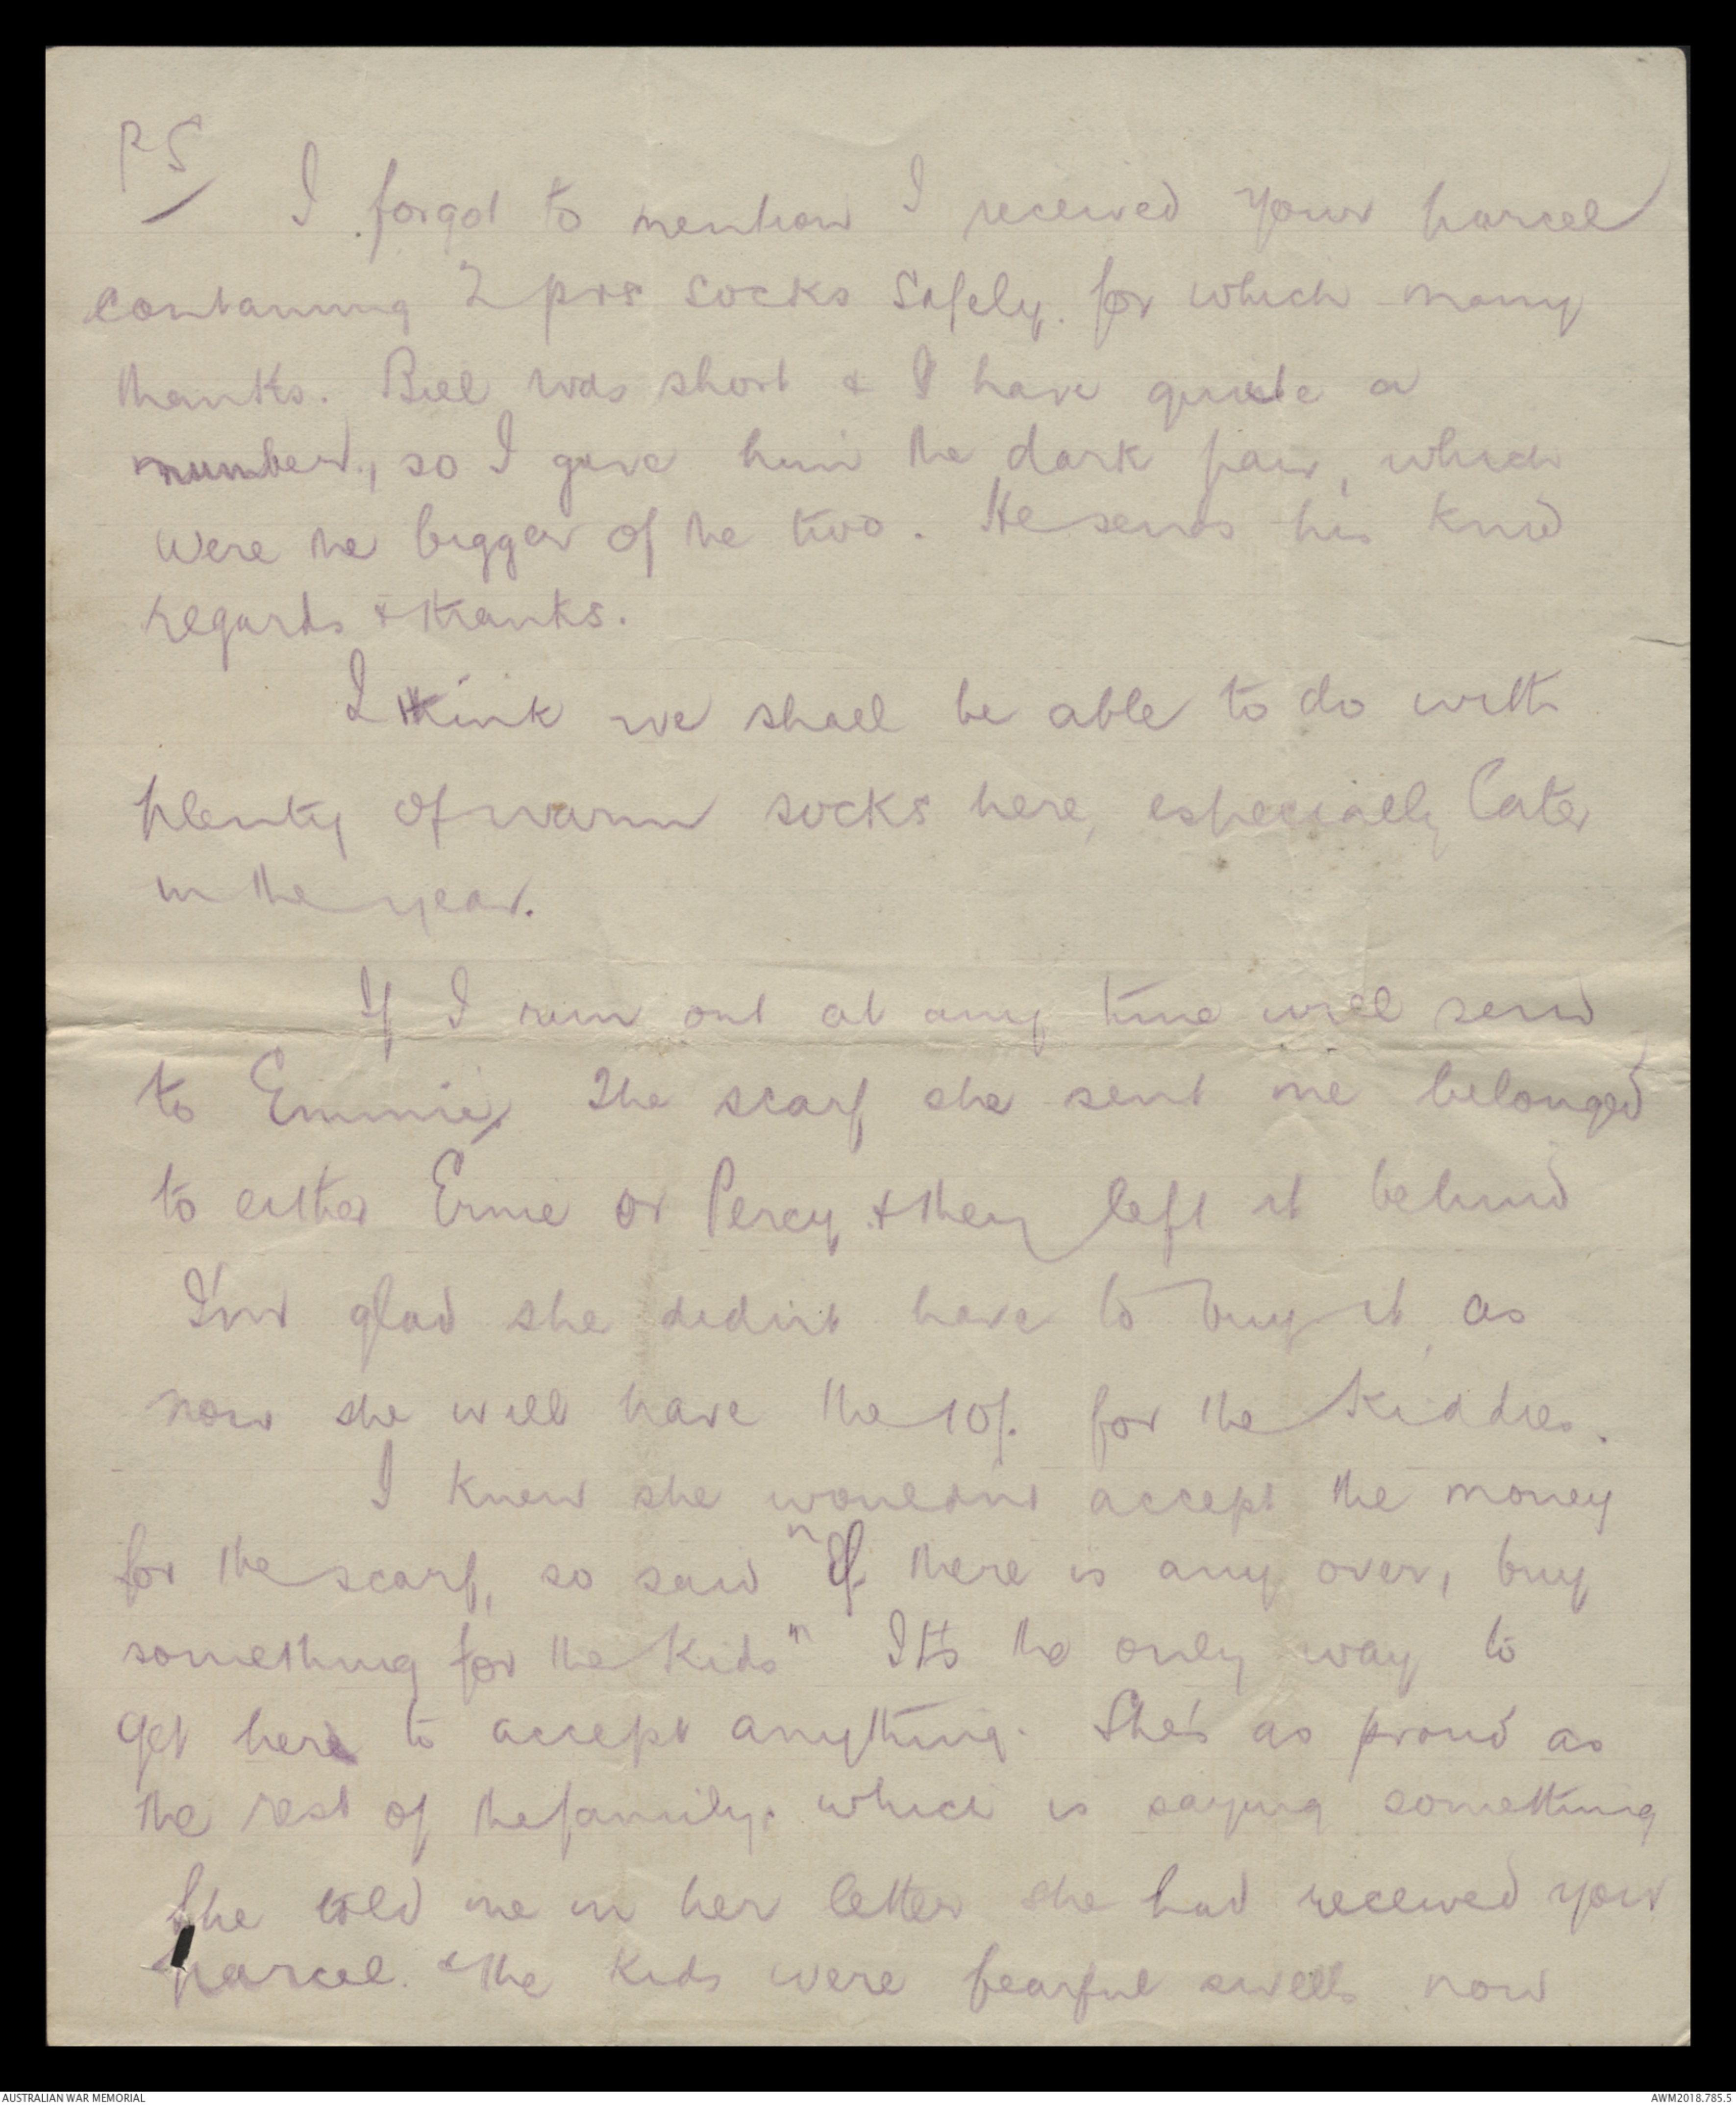 PS
I forgot to mention I received your parcel
containing 2 prs socks safely. for which many
thanks. Bill was short & I have quite a
number, so I gave him the dark pair, which
were the bigger of the two. He sends his kind
regards & thanks.
I think we shall be able to do with
plenty of warm socks here, especially later
in the year.
If I run out at any time will send
to Emmie. The scarf she sent me belonged
to either Ernie or Percy & they left it behind
I'm glad she didn't have to buy it, as
now she will have the 10/- for the kiddies.
I knew she wouldn't accept the money
for the scarf, so said "If there is any over, buy
something for the kids" Its the only way to
get her to accept anything. She's as proud as
the rest of the family. which is saying something
She told me in her letter she had received your
parcel. & the kids were fearful swells now
AUSTRALIAN WAR MEMORIAL
AWM2018.785.5